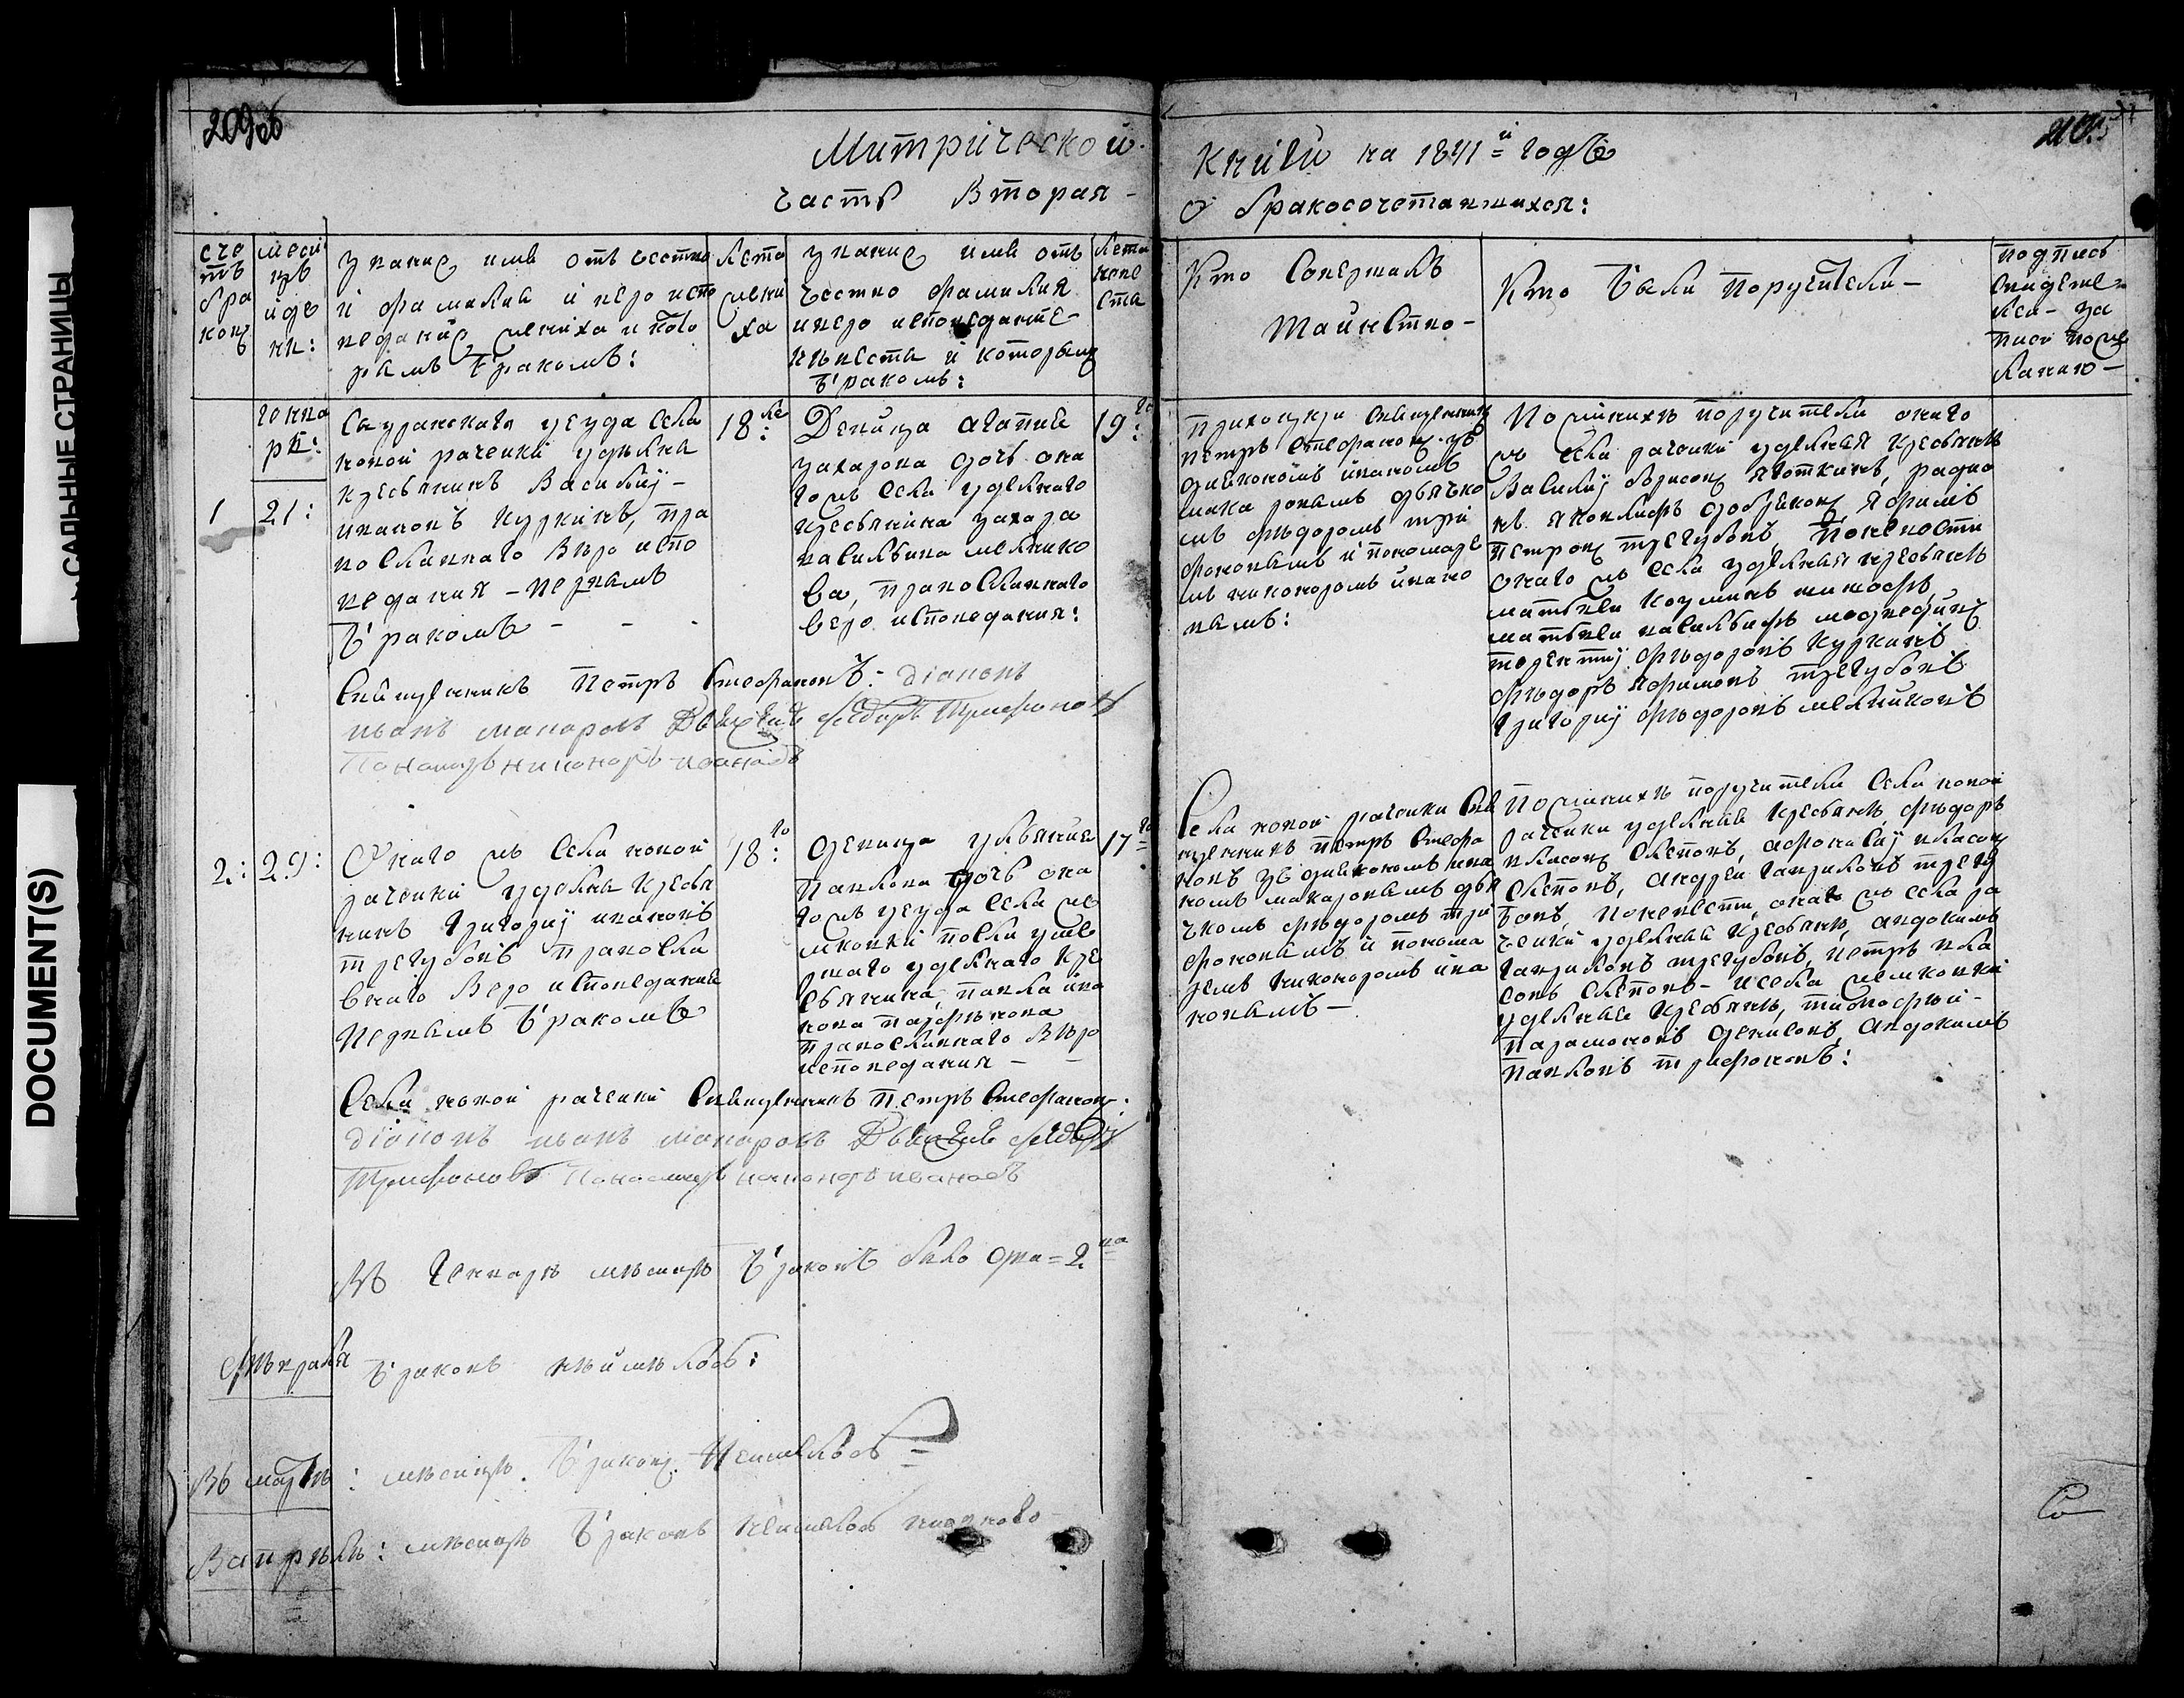 209об
Митрической
часть Вторая -
книги на 1841й годъ
О бракосочетавшихся:
счетъ браковъ
месяцъ и дни:
Звание имя отъчество
и фамилия и веро испо
ведание жениха и кото
рымъ бракомъ:
лета жениха
Звание имя отъ
чество фамилия
и веро исповедание
невеста и которымъ
бракомъ:
лета невеста
Кто Совершалъ
таинство -
Кто были поручители -
подпись
свидете-
лей за
писи по же
ланию -
генваря:
1
21:
Сызранскаго уезда села
новой рачейки удельна
кресьянинъ Василий -
ивановъ Куркинъ, пра
вославнаго Веро испо
ведания - первымъ
бракомъ - - -
18: ле
Девица агапия
захарова дочь она
гожъ села удельнаго
кресьянина захара
васильева мельнико
ва, православнаго
веро исповедания:
19: го
приходской священникъ
петръ стефановъ зъ
диякономъ иваномъ
макаровымъ дьячко
мъ федоромъ три
фоновымъ и пономаре
мъ никоноромъ ивано
вымъ:
По женихъ поручители онаго
жъ села рачейки удельныя кресьянъ
Василий борисовъ яготкинъ, радио
нъ яковлифъ добрыновъ, яфимъ
петровъ трегубовъ, Поневости
онаго жъ села удельныя кресьянъ
матьвей козминъ тимофъ,
матьвей васильифъ медведивъ
терентий федоровъ Куркинъ
федоръ яфимовъ трегубовъ
григорий федоровъ мельниковъ
Священникъ Петръ Стефановъ: діаконъ
иванъ макаровъ Дьячекъ федоръ Трифоновъ
Пономарь никоноръ ивановъ
2:
29:
Онаго жъ села новой
рачейки удельны кресья
нинъ григорий ивановъ
трегубовъ правосла
внаго Веро исповедания
Первымъ бракомъ
18: го
девица ульяния
павлова дочь она
гожъ уезда села же
мковки после умер
шаго удельнаго кре
сьянина, павла ива
нова парфенова
православнаго Веро
исповедания -
17 го
Села новой рачейки Свя
щенникъ петръ стефа
новъ зъ диякономъ ива
номъ макаровымъ дья
чкомъ федоромъ три
фоновымъ и понома
ремъ никоноромъ ива
новымъ -
По женихъ поручители села новой
рачейки удельные кресьянъ, федоръ
власовъ слеповъ, афонасий власовъ
слеповъ, андрей гавриловъ трегу
бовъ, Поневести, онаго жъ села ра
чейки удельные кресьянъ, андокимъ
гавриловъ трегубовъ, петръ вла
совъ слеповъ - и села жемковки
удельные кресьянъ, тимофий -
парамоновъ денисовъ, андокимъ
павловъ трифоновъ:
Села новой рачейки Священникъ петръ стефановъ:
діаконъ иванъ макаровъ Дьячекъ федоръ
Трифоновъ Пономарь никоноръ ивановъ
Въ генваре месяце браковъ было два = 2ва
Февраля браковъ неимелось:
Въ марте: месяце браковъ Неимелось =
Вапреле: месяце браковъ неимелось